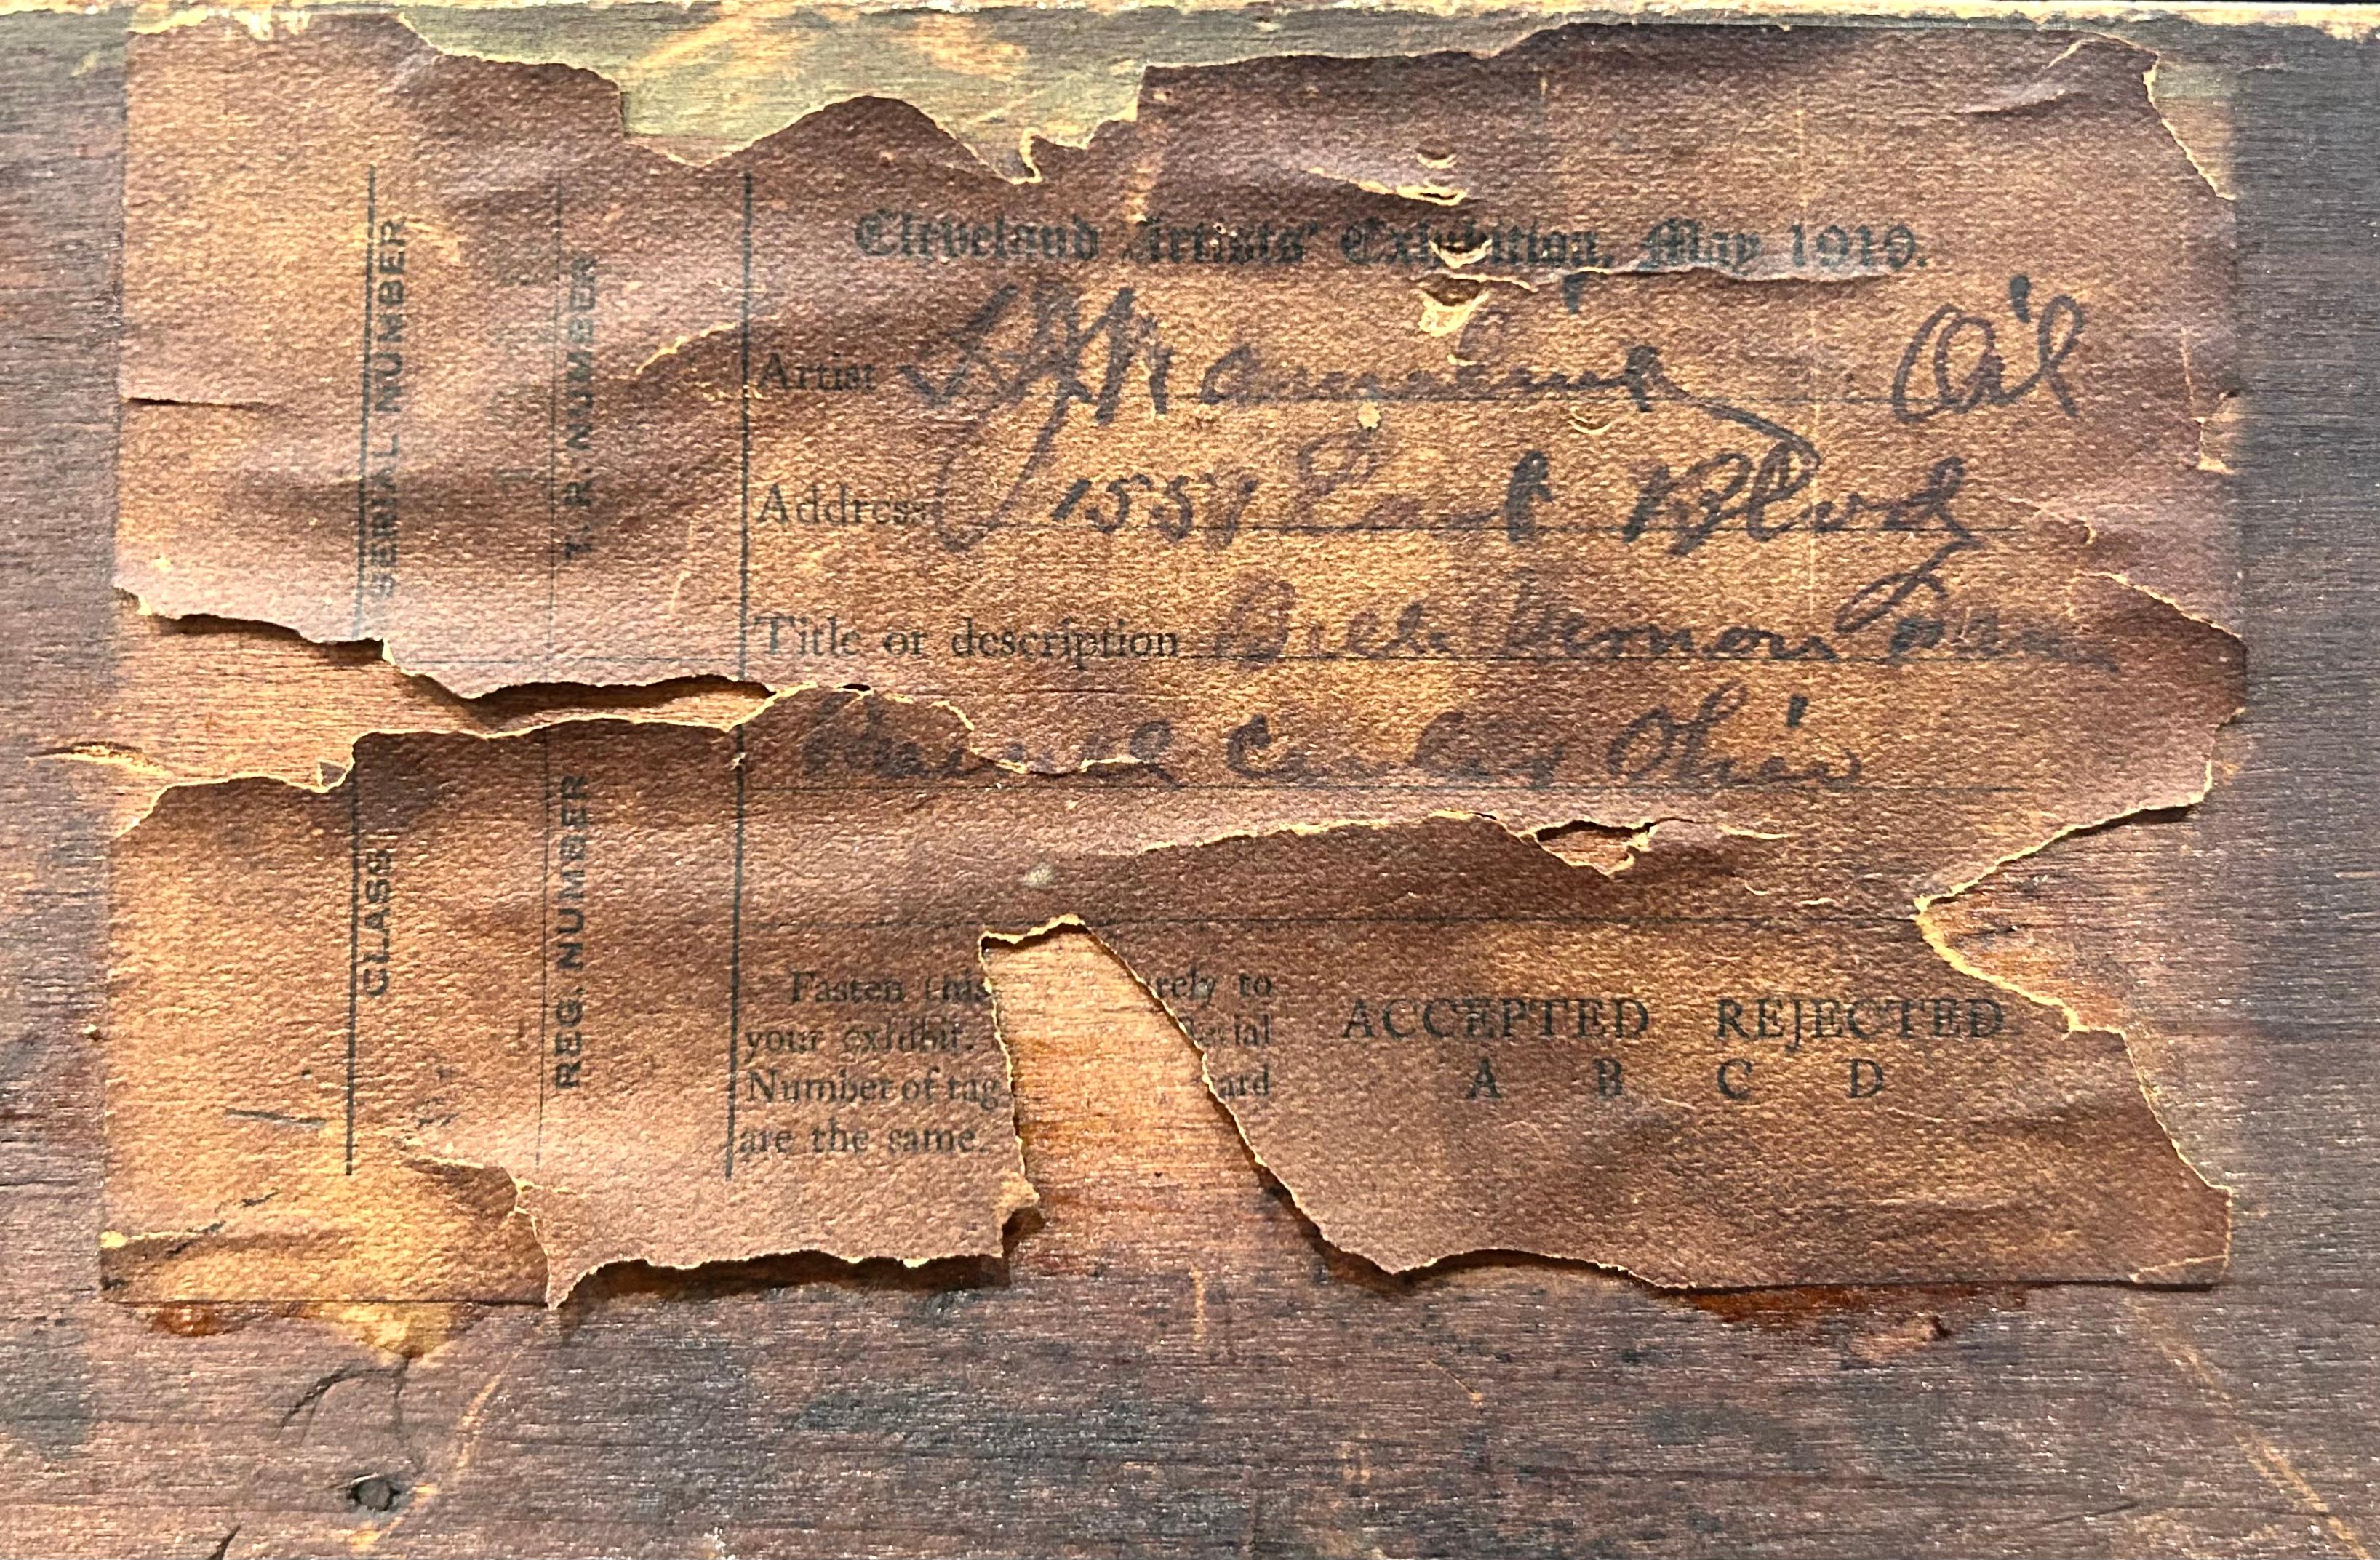 SERIAL NUMBER
T. R. NUMBER
CLASS
REG. NUMBER
Cleveland Artists' Exhibition, May 1919.
Artist Oil
Address 1557 East Blvd
Title or description Vernon
Ohio
Fasten this rely to
your exhibit. erial
Number of tag ard
are the same.
ACCEPTED REJECTED
A B C D